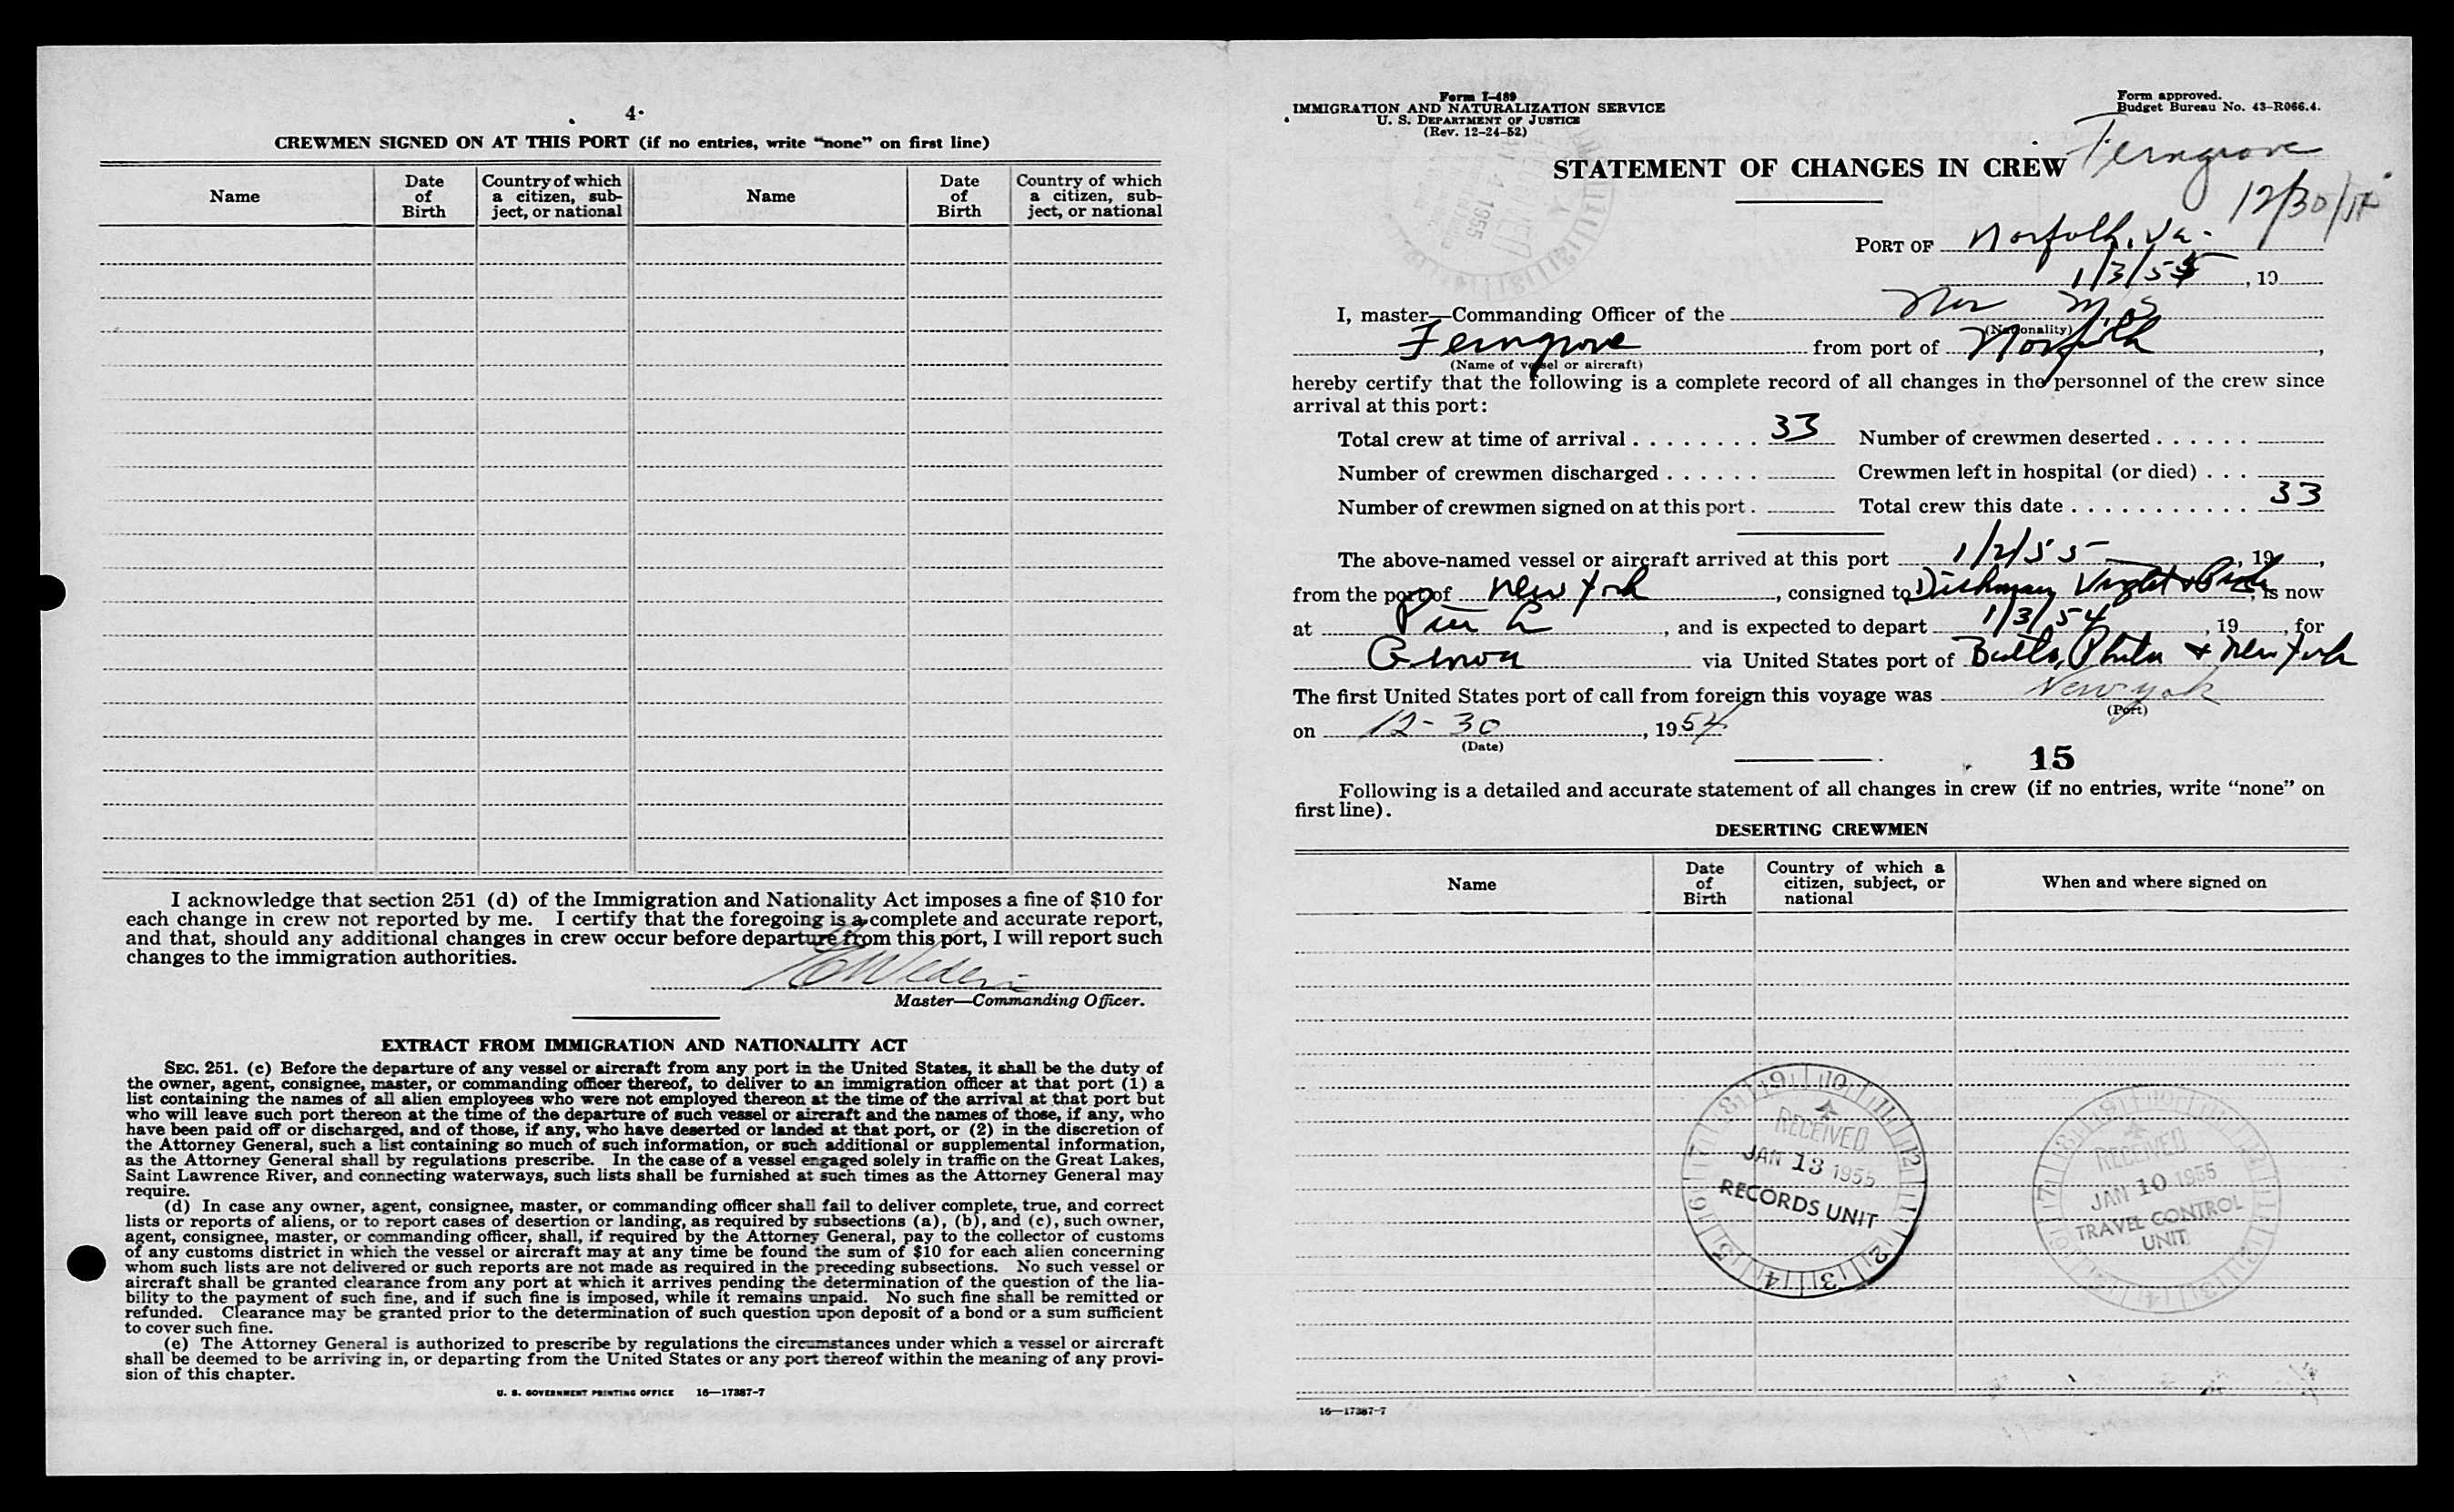 4.
CREWMEN SIGNED ON AT THIS PORT (if no entries, write “none” on first line)
Name
Date of Birth
Country of which a citizen, subject, or national
Name
Date of Birth
Country of which a citizen, subject, or national
I acknowledge that section 251 (d) of the Immigration and Nationality Act imposes a fine of $10 for
each change in crew not reported by me. I certify that the foregoing is a complete and accurate report,
and that, should any additional changes in crew occur before departure from this port, I will report such
changes to the immigration authorities.
Master—Commanding Officer.
EXTRACT FROM IMMIGRATION AND NATIONALITY ACT
SEC. 251. (c) Before the departure of any vessel or aircraft from any port in the United States, it shall be the duty of
the owner, agent, consignee, master, or commanding officer thereof, to deliver to an immigration officer at that port (1) a
list containing the names of all alien employees who were not employed thereon at the time of the arrival at that port but
who will leave such port thereon at the time of the departure of such vessel or aircraft and the names of those, if any, who
have been paid off or discharged, and of those, if any, who have deserted or landed at that port, or (2) in the discretion of
the Attorney General, such a list containing so much of such information, or such additional or supplemental information,
as the Attorney General shall by regulations prescribe. In the case of a vessel engaged solely in traffic on the Great Lakes,
Saint Lawrence River, and connecting waterways, such lists shall be furnished at such times as the Attorney General may
require.
(d) In case any owner, agent, consignee, master, or commanding officer shall fail to deliver complete, true, and correct
lists or reports of aliens, or to report cases of desertion or landing, as required by subsections (a), (b), and (c), such owner,
agent, consignee, master, or commanding officer, shall, if required by the Attorney General, pay to the collector of customs
of any customs district in which the vessel or aircraft may at any time be found the sum of $10 for each alien concerning
whom such lists are not delivered or such reports are not made as required in the preceding subsections. No such vessel or
aircraft shall be granted clearance from any port at which it arrives pending the determination of the question of the lia-
bility to the payment of such fine, and if such fine is imposed, while it remains unpaid. No such fine shall be remitted or
refunded. Clearance may be granted prior to the determination of such question upon deposit of a bond or a sum sufficient
to cover such fine.
(e) The Attorney General is authorized to prescribe by regulations the circumstances under which a vessel or aircraft
shall be deemed to be arriving in, or departing from the United States or any port thereof within the meaning of any provi-
sion of this chapter.
U. S. GOVERNMENT PRINTING OFFICE 16—17387-7
Form I-489
IMMIGRATION AND NATURALIZATION SERVICE
U. S. DEPARTMENT OF JUSTICE
(Rev. 12-24-52)
Form approved.
Budget Bureau No. 43-R066.4.
Ferngrove
STATEMENT OF CHANGES IN CREW
12/30/54
PORT OF Norfolk, Va.
1/3/55, 19
I, master—Commanding Officer of the Nor M.S
(Nationality)
Ferngrove from port of Norfolk,
(Name of vessel or aircraft)
hereby certify that the following is a complete record of all changes in the personnel of the crew since
arrival at this port:
Total crew at time of arrival 33 Number of crewmen deserted
Number of crewmen discharged Crewmen left in hospital (or died)
Number of crewmen signed on at this port Total crew this date 33
The above-named vessel or aircraft arrived at this port 1/2/55, 19,
from the port of New York, consigned to Dichmann Wright & Pugh, is now
at Pier, and is expected to depart 1/3/54, 19, for
Genoa via United States port of Balto, Phila & New York
The first United States port of call from foreign this voyage was New York
(Port)
on 12-30, 1954
(Date)
15
Following is a detailed and accurate statement of all changes in crew (if no entries, write “none” on
first line).
DESERTING CREWMEN
Name
Date of Birth
Country of which a citizen, subject, or national
When and where signed on
RECEIVED
JAN 13 1955
RECORDS UNIT
RECEIVED
JAN 10 1955
TRAVEL CONTROL
UNIT
16—17387-7